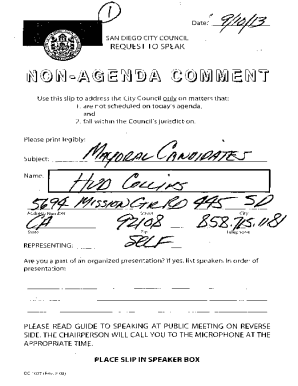 1
Date: 9/10/13
SAN DIEGO CITY COUNCIL
REQUEST TO SPEAK
NON-AGENDA COMMENT
Use this slip to address the City Council only on matters that:
1. are not scheduled on today's agenda,
and
2. fall within the Council's jurisdiction.
Please print legibly:
Subject: MAYORAL CANDIDATES
Name: HUD COLLINS
5694 MISSION CTR RD 445 SD
Street City
CA 92108
State Zip Telephone
REPRESENTING: SELF
Are you a part of an organized presentation? If yes, list speakers in order of
presentation:
PLEASE READ GUIDE TO SPEAKING AT PUBLIC MEETING ON REVERSE
SIDE. THE CHAIRPERSON WILL CALL YOU TO THE MICROPHONE AT THE
APPROPRIATE TIME.
PLACE SLIP IN SPEAKER BOX